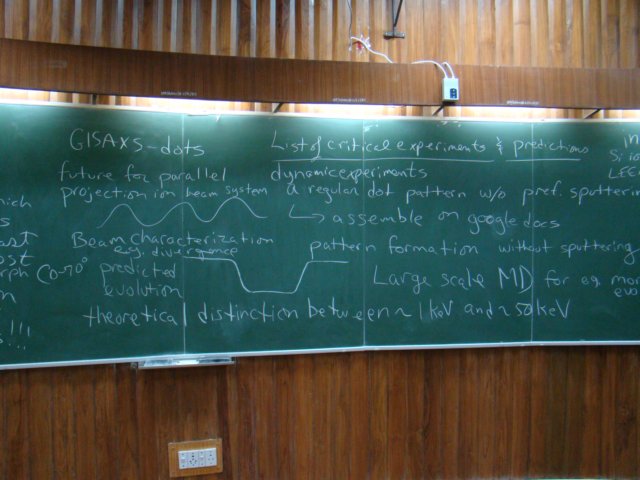 GISAXS-dots
future for parallel
projection ion beam system
Beam characterization
e.g. divergence
predicted
evolution
0-70°
theoretical distinction between ~ 1 keV and ~ 50 keV
List of critical experiments & predictions
dynamic experiments
a regular dot pattern w/o pref. sputtering
assemble on google docs
pattern formation without sputtering
Large scale MD for e.g. mor
evo
in
Si io
LEC
ich
s
ast
ost
orph
n
!!!
s.